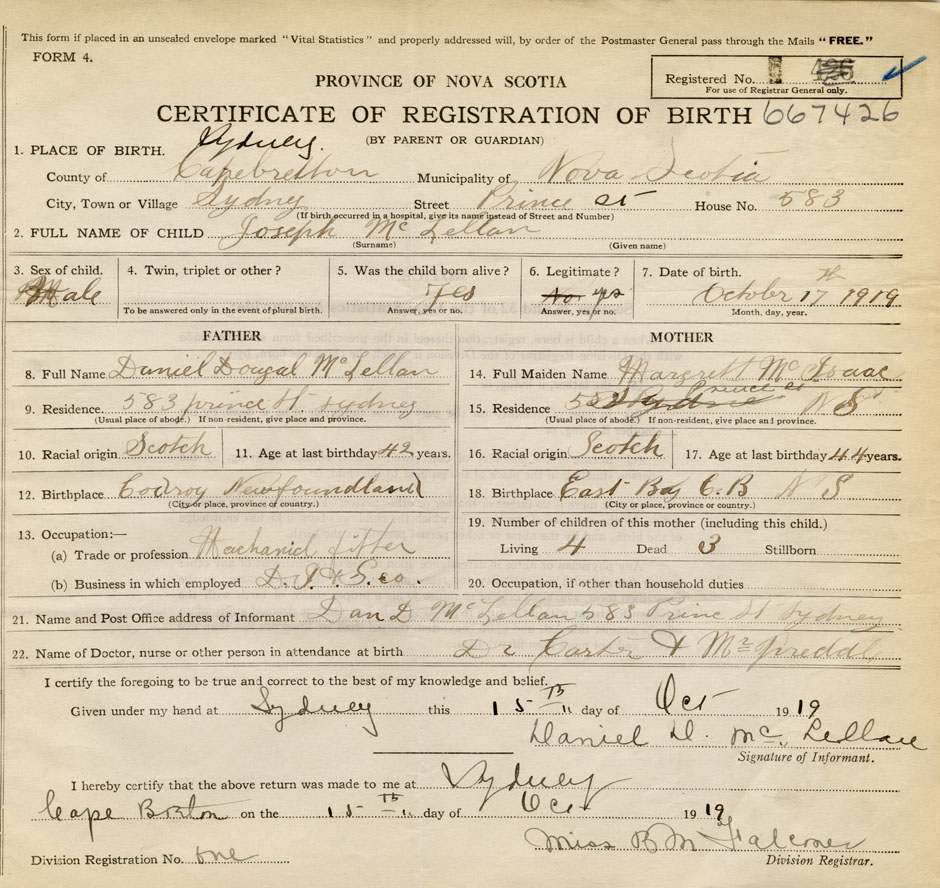 This form if placed in an unsealed envelope marked "Vital Statistics" and properly addressed will, by order of the Postmaster General pass through the Mails "FREE."
FORM 4.
Registered No.
For use of Registrar General only.
PROVINCE OF NOVA SCOTIA
CERTIFICATE OF REGISTRATION OF BIRTH 667426
(BY PARENT OR GUARDIAN)
1. PLACE OF BIRTH. Sydney.
County of Capebretton Municipality of Nova Scotia
City, Town or Village Sydney Street Prince St House No. 583
(If birth occurred in a hospital, give its name instead of Street and Number)
2. FULL NAME OF CHILD Joseph McLellan
(Surname) (Given name)
3. Sex of child. 4. Twin, triplet or other? 5. Was the child born alive? 6. Legitimate? 7. Date of birth.
Male Yes No yes October 17th 1919
To be answered only in the event of plural birth. Answer, yes or no. Answer, yes or no. Month, day, year.
FATHER MOTHER
8. Full Name Daniel Dougal McLellan 14. Full Maiden Name Margret McIsaac
9. Residence. 583 prince St. Sydney 15. Residence Prince St N S
(Usual place of abode.) If non-resident, give place and province. (Usual place of abode.) If non-resident, give place and province.
10. Racial origin Scotch 11. Age at last birthday 42 years. 16. Racial origin Scotch 17. Age at last birthday 44 years.
12. Birthplace Codroy Newfoundland 18. Birthplace East Bay C.B N S
(City or place, province or country.) (City or place, province or country.)
13. Occupation:— 19. Number of children of this mother (including this child.)
(a) Trade or profession Machanid fitter Living 4 Dead 3 Stillborn
(b) Business in which employed D. I. & S. co. 20. Occupation, if other than household duties
21. Name and Post Office address of Informant Dan D McLellan 583 Prince St Sydney
22. Name of Doctor, nurse or other person in attendance at birth Dr Carter &
I certify the foregoing to be true and correct to the best of my knowledge and belief.
Given under my hand at Sydney this 15th day of Oct 1919
Daniel D. McLellan
Signature of Informant.
I hereby certify that the above return was made to me at Sydney
Cape Breton on the 15th day of Oct 1919
Miss B M Falconer
Division Registration No. one Division Registrar.